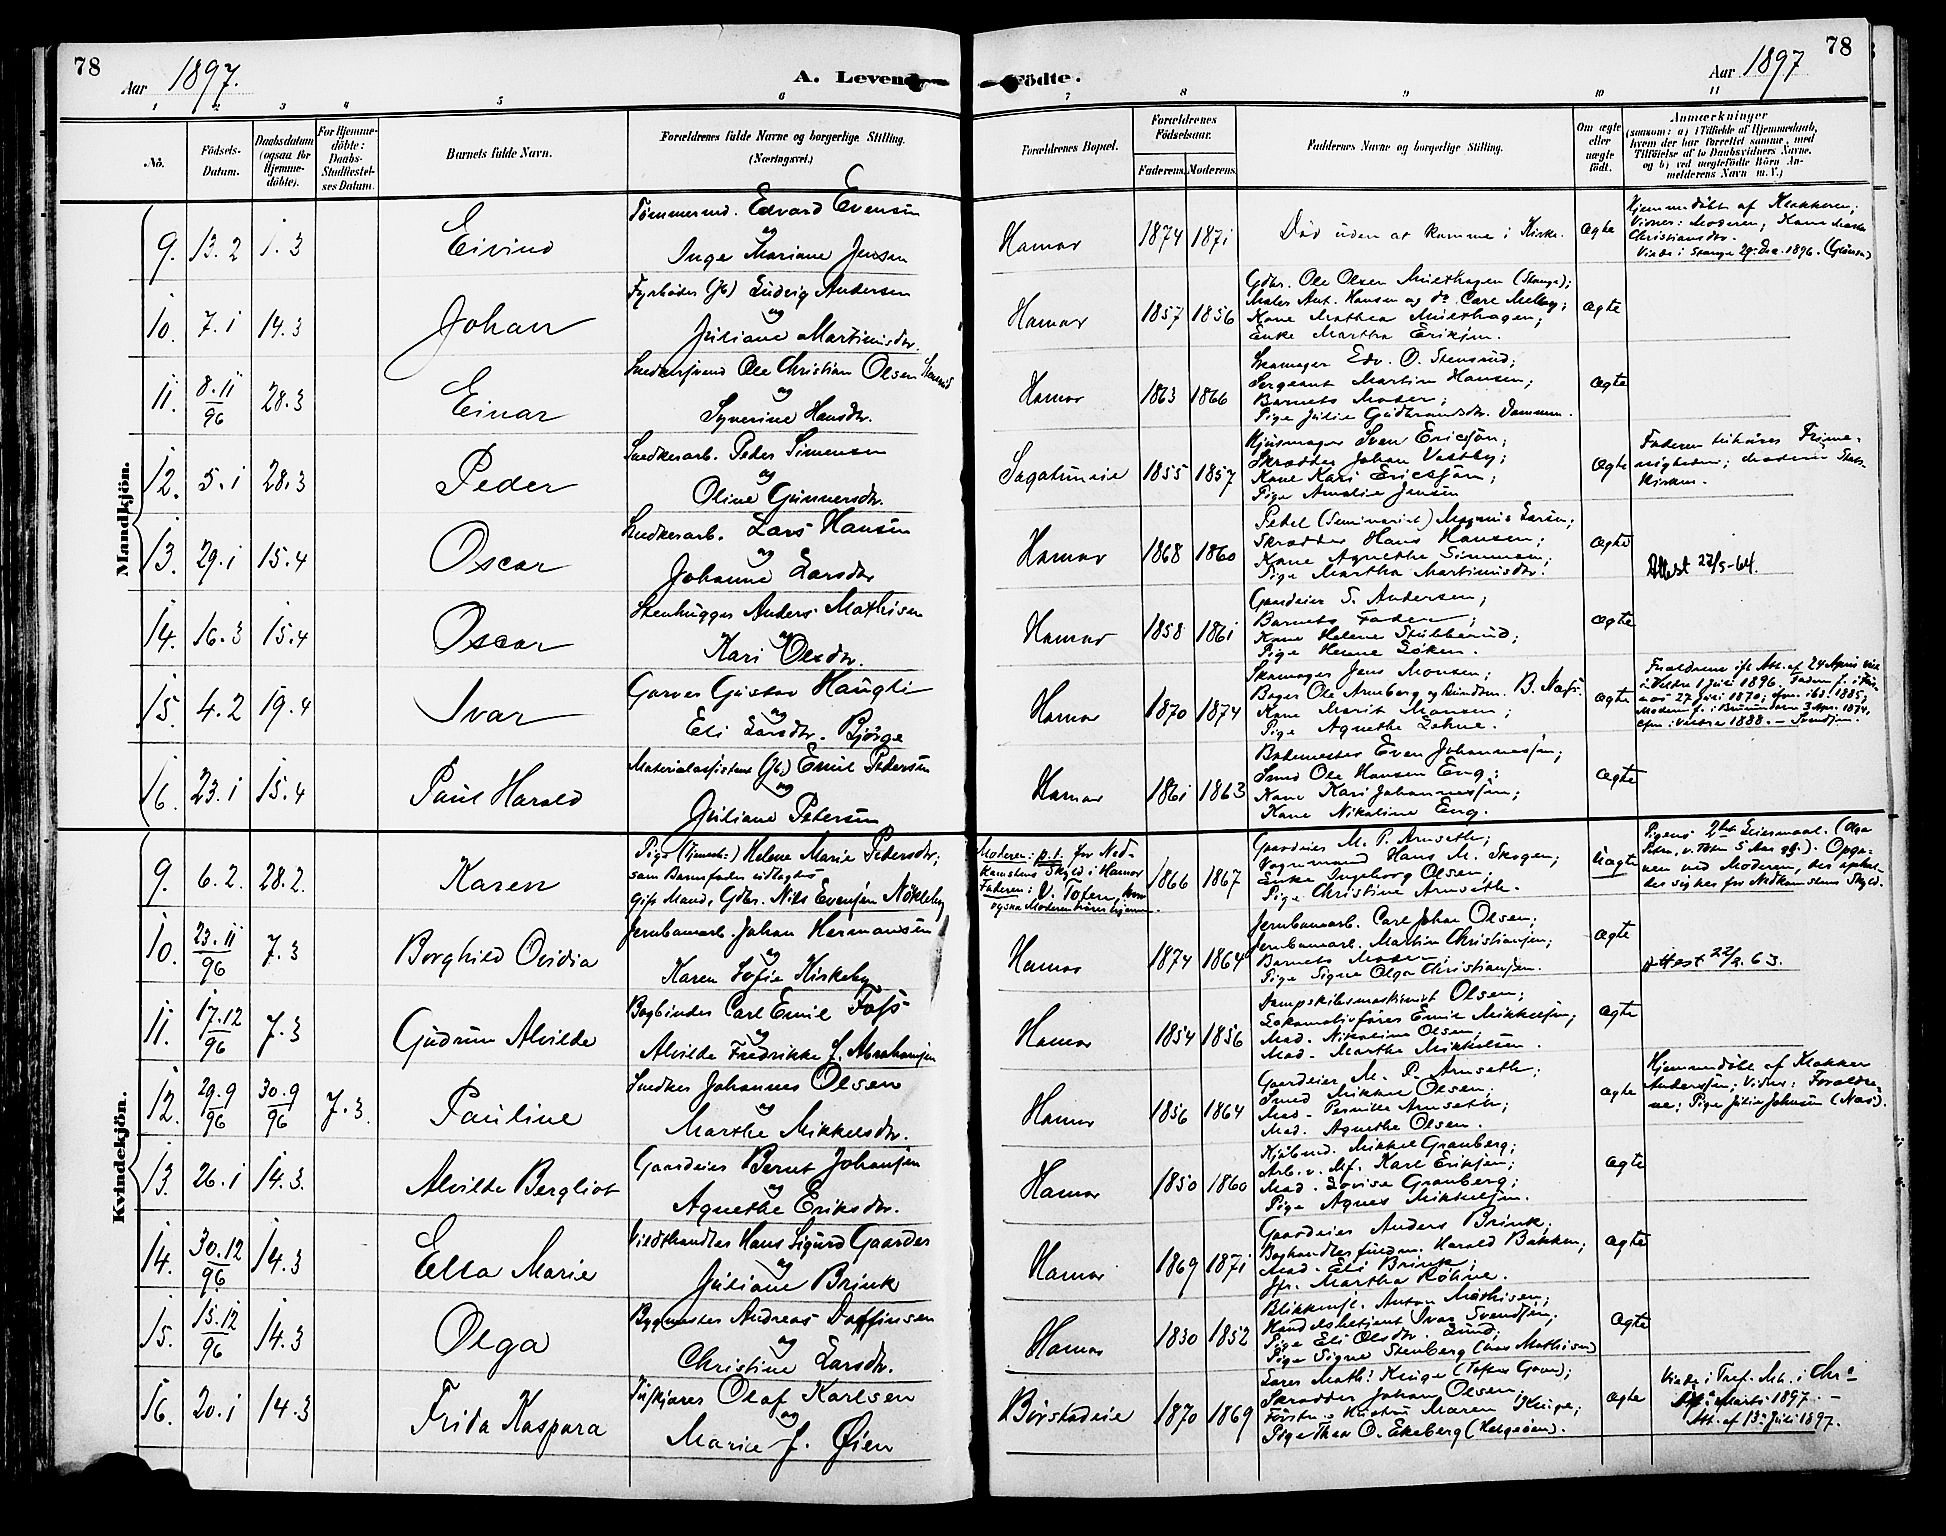 78
Aar 1897.
A. Levende
Födte.
Aar 1897
78
1 2 3 4 5 6 7 8 9 10 11
No.
Födsels-
Datum.
Daabsdatum
(ogsaa for
Hjemme-
döbte).
For Hjemme-
döbte:
Daabs-
Stadfæstel-
ses Datum.
Barnets fulde Navn.
Forældrenes fulde Navne og borgerlige Stilling.
(Næringsvei.)
Forældrenes Bopæl.
Forældrenes
Födselsaar.
Faderens. Moderens.
Faddernes Navne og borgerlige Stilling.
Om ægte
eller
uægte
födt.
Anmærkninger
(saasom: a) i Tilfælde af Hjemmedaab,
hvem der har forrettet samme, med
Tilföielse af to Daabsvidners Navne,
og b) ved uægtefödte Börn An-
melderens Navn m. V.)
Mandkjön.
9. 13.2 1.3 Eivind
Tømmermd. Edvard Evensen
og
Inge Mariane Jensen
Hamar 1874 1871
Død uden at komme i Kirke.
Ægte
Hjemmedøbt af Klokkeren;
Vidner: Moderen, Kone Marthe
Christiansdtr.
Viede i Stange 29. Dec. 1896.
10. 7.1 14.3 Johan
Fyrbøder (Jb) Ludvig Andersen
og
Juliane Martinusdtr.
Hamar 1857 1856
Gdbr. Ole Olsen Mælthagen (Stange);
Maler Ant. Hansen og do Carl Melby;
Kone Mathea Mælthagen;
Enke Martha Eriksen.
Ægte
11. 8.11/96 28.3 Einar
Snedkersvend Ole Christian Olsen
og
Syverine Hansdtr.
Hamar 1863 1866
Skomager Edv. O. Stensrud;
Sergeant Martin Hansen;
Barnets Moder;
Pige Julie Gudbrandsdtr. Dammen.
Ægte
12. 5.1 28.3 Peder
Snedkerarb. Peder Simensen
og
Oline Gunnersdtr.
Sagatuneie 1855 1857
Hjulmager Sven Ericsson;
Skrædder Johan Vestby;
Kone Kari Ericsson;
Pige Amalie Jensen
Ægte
Faderen tilhører Frime-
nigheden; Moderen Stats-
Kirken.
13. 29.1 15.4 Oscar
Snedkerarb. Lars Hansen
og
Johanne Larsdtr
Hamar 1868 1860
Pedel (Seminariet) Magnus Larsen;
Skrædder Hans Hansen;
Kone Agnethe Simensen;
Pige Martha Martinusdtr.
Ægte
Attest 22/5-64.
14. 16.3 15.4 Oscar
Stenhugger Anders Mathisen
og
Kari Olsdtr.
Hamar 1858 1861
Gaardeier S. Andersen;
Barnets Fader;
Kone Helene Stubberud;
Pige Helene Løken.
Ægte
15. 4.2 19.4 Ivar
Garver Gustav Haugli
og
Eli Larsdtr. Bjørge
Hamar 1870 1874
Skomager Jens Monsen;
Bager Ole Arnberg og Kundm. B. Næss.
Kone Marit Monsen;
Pige Agnethe Lehne.
Ægte
Forældrene ifl. Att. af 24 April viet
i Veldre 1 Juli 1896. Faderen f. i
27 Juli 1870; cfm. ibd 1885,
Moderen f. i Brumunddalen 3 Apr. 1874,
cfm. i Veldre 1888.
16. 23.1 15.4 Paul Harald
Materialassistent (Jb.) Emil Pedersen
og
Juliane Petersen
Hamar 1861 1863
Banemester Even Johannessen;
Smed Ole Hansen Eng;
Kone Kari Johannessen;
Kone Nikoline Eng.
Ægte
Kvindekjön.
9. 6.2. 28.2. Karen
Pige (Tjenest.) Helene Marie Pedersdtr;
som Barnefader udlagdes
gift Mand, Gdbr. Nils Evensen Nøkleby
Moderen: p.t. for Ned-
komstens Skyld i Hamar
Faderen: V. Toten, hvor
ogsaa Moderen hører hjemme.
1866 1867
Gaardeier M. P. Arnseth;
Vognmand Hans M. Skogen;
Enke Ingeborg Olsen;
Pige Christine Arnseth.
Uægte
Pigens 2det Leiermaal.
10. 23.11/96 7.3 Borghild Ovidia
Jernbanearb. Johan Hermansen
og
Karen Sofie Kirkeby
Hamar 1874 1864
Jernbanearb. Carl Johan Olsen;
Jernbanearb. Martin Christiansen;
Barnets Moder;
Pige Signe Olga Christiansen.
Ægte
Attest 22/2.63.
11. 17.12/96 7.3 Gudrun Alvilde
Bogbinder Carl Emil Foss
og
Alvilde Fredrikke f. Abrahamsen
Hamar 1854 1856
Dampskibsmaskinist Olsen;
Lokomotivfører Emil Mikkelsen;
Mad. Nikoline Olsen;
Mad. Marthe Mikkelsen.
Ægte
12. 29.9/96 30.9/96 7.3. Pauline
Snedker Johannes Olsen
og
Marthe Mikkelsdtr.
Hamar 1856 1864
Gaardeier M. P. Arnseth;
Smed Mikkel Olsen;
Mad. Pernille Arnseth;
Mad. Agnethe Olsen.
Ægte
Hjemmedøbt af Klokker
Anderssen; Vidner: Forældre-
ne; Pige Julie Johnsen (Næs).
13. 26.1 14.3. Alvilde Bergliot
Gaardeier Bernt Johansen
og
Agnethe Eriksdtr.
Hamar 1850 1860
Kjøbmd. Mikkel Granberg;
Arb. v. Mf. Karl Eriksen;
Mad. Lovise Granberg;
Pige Agnes Mikkelsen.
Ægte
14. 30.12/96 14.3 Ella Marie
Vildthandler Hans Sigurd Gaarder
og
Juliane Brink
Hamar 1869 1871
Gaardeier Anders Brink;
Boghandlerfuldm. Harald Bakken;
Mad. Eli Brink;
Jfr. Martha Røhne.
Ægte
15. 15.12/96 14.3 Olga
Bygmester Andreas Daffinssen
og
Christine Larsdtr.
Hamar 1830 1852
Blikkensl. Anton Mathisen;
Handelsbetjent Ivar Svendsen;
Pige Eli Olsdtr. Lund;
Pige Signe Stenberg (hos Mathisen)
Ægte
16. 20.1 14.3 Frida Kaspara
Tuskjører Olaf Karlsen
og
Marie f. Øien
Børstadeie 1870 1869
Lærer Math. Kinge (Toftes Gave);
Skrædder Johan Olsen;
Førstn.s Hustru Maren Kinge;
Pige Thea O. Ekeberg (Helgøen).
Ægte
Viede i Tref. Mh. i Chra
Marts 1897.
Att. af 13 Juli 1897.